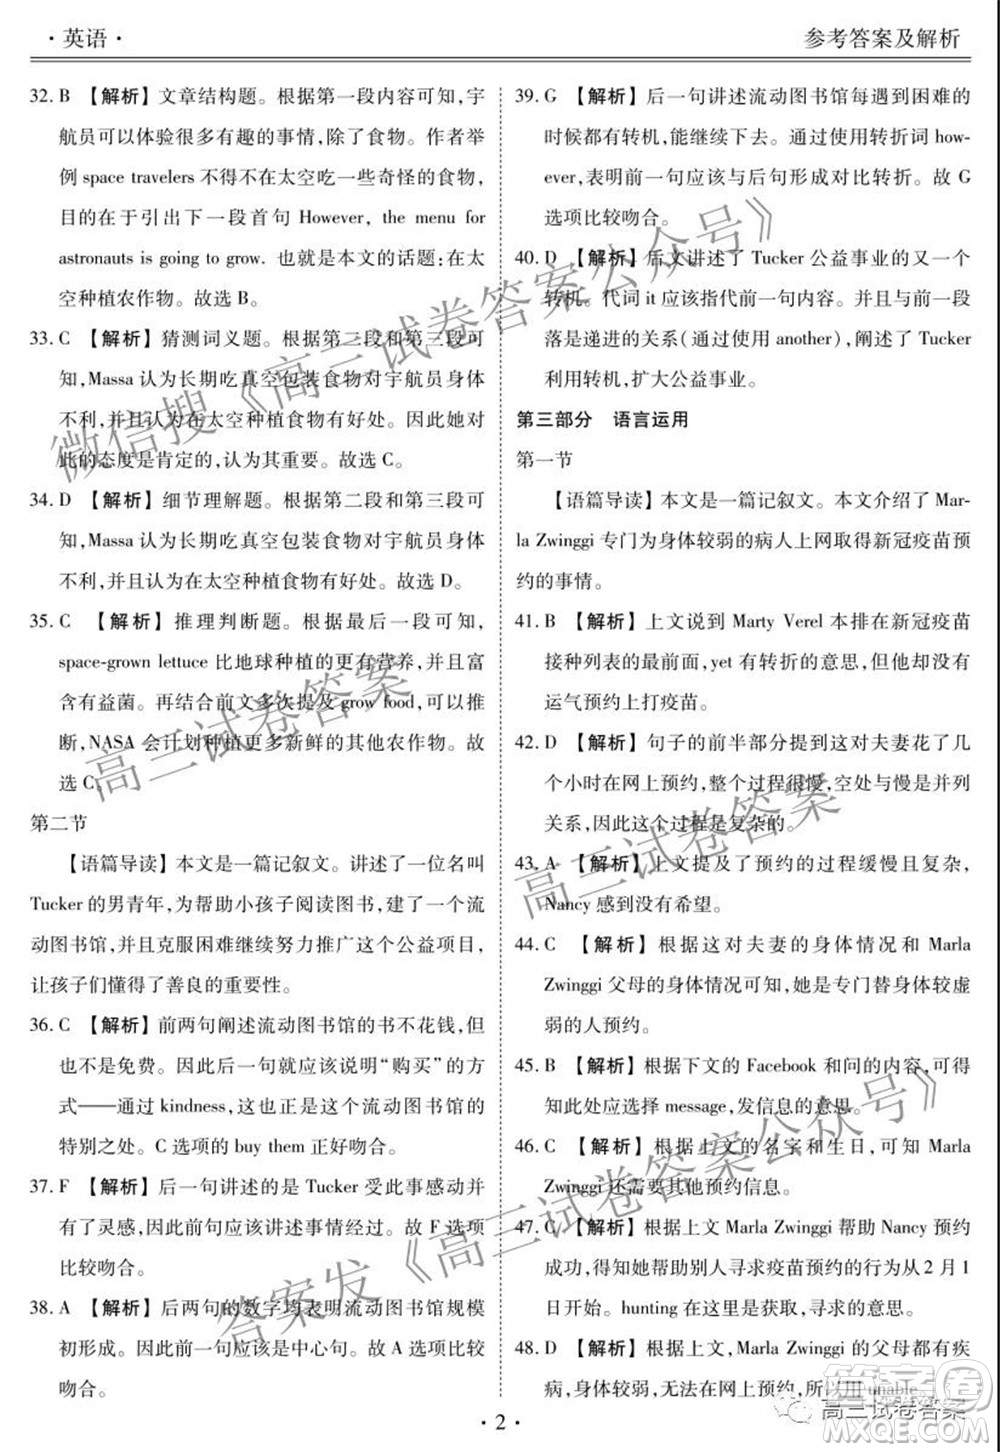 · 英语 ·
参考答案及解析
32. B 【解析】文章结构题。根据第一段内容可知,宇
航员可以体验很多有趣的事情,除了食物。作者举
例 space travelers 不得不在太空吃一些奇怪的食物,
目的在于引出下一段首句 However, the menu for
astronauts is going to grow. 也就是本文的话题:在太
空种植农作物。故选 B。
33. C 【解析】猜测词义题。根据第二段和第三段可
知,Massa 认为长期吃真空包装食物对宇航员身体
不利,并且认为在太空种植食物有好处。因此她对
此的态度是肯定的,认为其重要。故选 C。
34. D 【解析】细节理解题。根据第二段和第三段可
知,Massa 认为长期吃真空包装食物对宇航员身体
不利,并且认为在太空种植食物有好处。故选 D。
35. C 【解析】推理判断题。根据最后一段可知,
space-grown lettuce 比地球种植的更有营养,并且
富含有益菌。再结合前文多次提及 grow food,可以推
断,NASA 会计划种植更多新鲜的其他农作物。故
选 C。
第二节
【语篇导读】本文是一篇记叙文。讲述了一位名叫
Tucker 的男青年,为帮助小孩子阅读图书,建了一个流
动图书馆,并且克服困难继续努力推广这个公益项目,
让孩子们懂得了善良的重要性。
36. C 【解析】前两句阐述流动图书馆的书不花钱,但
也不是免费。因此后一句就应该说明“购买”的方
式——通过 kindness,这也正是这个流动图书馆的
特别之处。C 选项的 buy them 正好吻合。
37. F 【解析】后一句讲述的是 Tucker 受此事感动并
有了灵感,因此前句应该讲述事情经过。故 F 选项
比较吻合。
38. A 【解析】后两句的数字均表明流动图书馆规模
初形成。因此前一句应该是中心句。故 A 选项比较
吻合。
39. G 【解析】后一句讲述流动图书馆每遇到困难的
时候都有转机,能继续下去。通过使用转折词 how-
ever,表明前一句应该与后句形成对比转折。故 G
选项比较吻合。
40. D 【解析】后文讲述了 Tucker 公益事业的又一个
转机。代词 it 应该指代前一句内容。并且与前一段
落是递进的关系(通过 another),阐述了 Tucker
利用转机,扩大公益事业。
第三部分 语言运用
第一节
【语篇导读】本文是一篇记叙文。本文介绍了 Mar-
la Zwinggi 专门为身体较弱的病人上网取得新冠疫苗预
约的事情。
41. B 【解析】上文说到 Marty Verel 本排在新冠疫苗
接种列表的最前面,yet 有转折的意思,但他却没有
运气预约上打疫苗。
42. D 【解析】句子的前半部分提到这对夫妻花了几
个小时在网上预约,整个过程很慢,空处与慢是并列
关系,因此这个过程是复杂的。
43. A 【解析】上文提及了预约的过程缓慢且复杂,
Nancy 感到没有希望。
44. C 【解析】根据这对夫妻的身体情况和 Marla
Zwinggi 父母的身体情况可知,是专门替身体较虚
弱的人预约。
45. B 【解析】根据下文的 Facebook 和问的内容,可得
知此处应选择 message,发信息的意思。
46. C 【解析】根据上文的名字和生日,可知 Marla
Zwinggi 还需要其他预约信息。
47. C 【解析】根据上文 Marla Zwinggi 帮助 Nancy 预约
成功,得知她帮助别人寻求疫苗预约的行为从 2 月 1
日开始。hunting 在这里是获取,寻求的意思。
48. D 【解析】根据上文,Marla Zwinggi 的父母都有疾
病,身体都很弱,无法在网上预约,所以用 unable。
· 2 ·
微信搜《高三试卷答案公众号》
高三试卷答案
高三试卷答案
答案发《高三试卷答案公众号》
高三试卷答案
答案圈
MXQE.COM